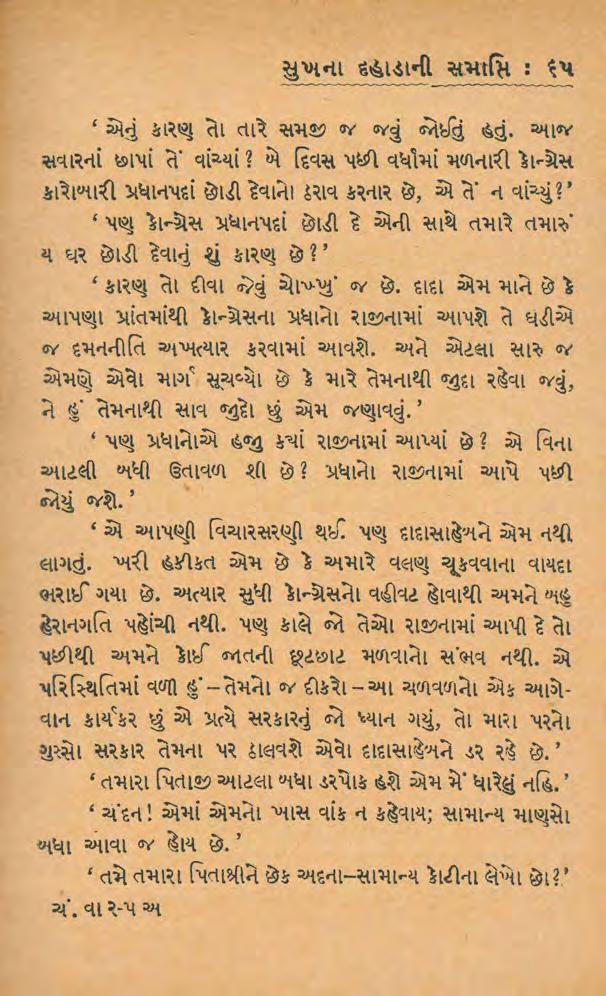 સુખના દહાડાની સમાપ્તિ : ૬૫
‘ એનું કારણ તો તારે સમજી જ જવું જોઈતું હતું. આજ
સવારનાં છાપાં તેં વાંચ્યાં ? બે દિવસ પછી વર્ધામાં મળનારી કોન્ગ્રેસ
કારોબારી પ્રધાનપદાં છોડી દેવાનો ઠરાવ કરનાર છે, એ તેં ન વાંચ્યું ?’
‘ પણ કોન્ગ્રેસ પ્રધાનપદાં છોડી દે એની સાથે તમારે તમારું
ય ઘર છોડી દેવાનું શું કારણ છે ?’
‘ કારણ તો દીવા જેવું ચોખ્ખું જ છે. દાદા એમ માને છે કે
આપણા પ્રાંતમાંથી કોન્ગ્રેસના પ્રધાનો રાજીનામાં આપશે તે ઘડીએ
જ દમનનીતિ અખત્યાર કરવામાં આવશે. અને એટલા સારુ જ
એમણે એવો માર્ગ સૂચવ્યો છે કે મારે તેમનાથી જુદા રહેવા જવું,
ને હું તેમનાથી સાવ જુદો છું એમ જણાવવું.’
‘ પણ પ્રધાનોએ હજુ કયાં રાજીનામાં આપ્યાં છે ? એ વિના
આટલી બધી ઉતાવળ શી છે ? પ્રધાનો રાજીનામાં આપે પછી
જોયું જશે.’
‘ એ આપણી વિચારસરણી થઈ. પણ દાદાસાહેબને એમ નથી
લાગતું. ખરી હકીકત એમ છે કે અમારે વલણ ચૂકવવાના વાયદા
ભરાઈ ગયા છે. અત્યાર સુધી કોન્ગ્રેસનો વહીવટ હોવાથી અમને બહુ
હેરાનગતિ પહોંચી નથી. પણ કાલે જો તેઓ રાજીનામાં આપી દે તો
પછીથી અમને કોઈ જાતની છૂટછાટ મળવાનો સંભવ નથી. એ
પરિસ્થિતિમાં વળી હું – તેમનો જ દીકરો – આ ચળવળનો એક આગે-
વાન કાર્યકર છું એ પ્રત્યે સરકારનું જો ધ્યાન ગયું, તો મારા પરનો
ગુસ્સો સરકાર તેમના પર ઠાલવશે એવો દાદાસાહેબને ડર રહે છે.’
‘ તમારા પિતાજી આટલા બધા ડરપોક હશે એમ મેં ધારેલું નહિ.’
‘ ચંદન ! એમાં એમનો ખાસ વાંક ન કહેવાય; સામાન્ય માણસો
બધા આવા જ હોય છે.’
‘ તમે તમારા પિતાશ્રીને છેક અદના–સામાન્ય કોટીના લેખો છો ?’
ચં. વા ૨-૫ અ